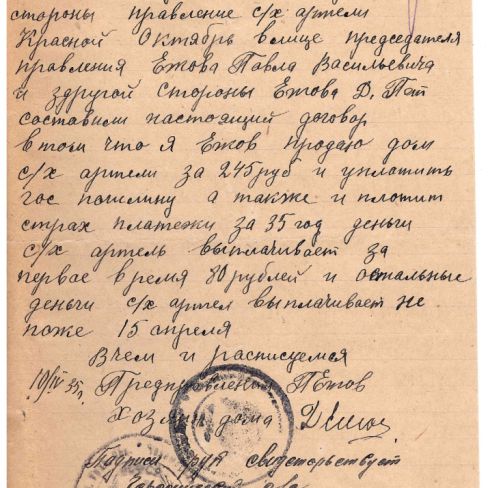 стороны правление с/х артели
Красной Октябрь влице председателя
правления Ежова Павла Васильевича
и здругой стороны Ежова Д. Пат
составили настоящий договор
втом что я Ежов продаю дом
с/х артели за 245 руб и уплатить
гос пошлину а также и плотит
страх платежи за 35 год деньги
с/х артель выплачивает за
первае время 80 рублей и остальные
деньги с/х артел выплачивает не
поже 15 апреля
Вчем и расписуемся
10/IV 35 г. Предправления ПЕжов
Хозяин дома
Подписи рук свидетельствует